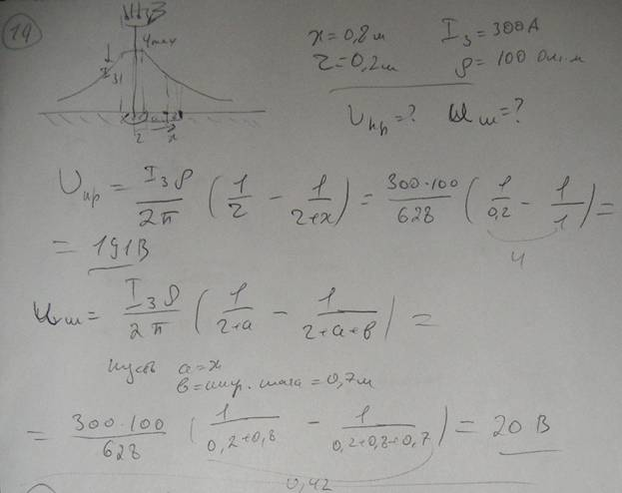 19
φmax
I з
x = 0,8 м   I з = 300 А
r = 0,2 м   ρ = 100 Ом·м
Uпр = ?   Uш = ?
Uпр = Iзρ/2π (1/r − 1/(r+x)) = 300·100/628 (1/0,2 − 1/1) =
4
= 191 В
Uш = Iзρ/2π (1/(r+a) − 1/(r+a+в)) =
пусть a = x
в = шир. шага = 0,7 м
= 300·100/628 (1/(0,2+0,8) − 1/(0,2+0,8+0,7)) = 20 В
0,42